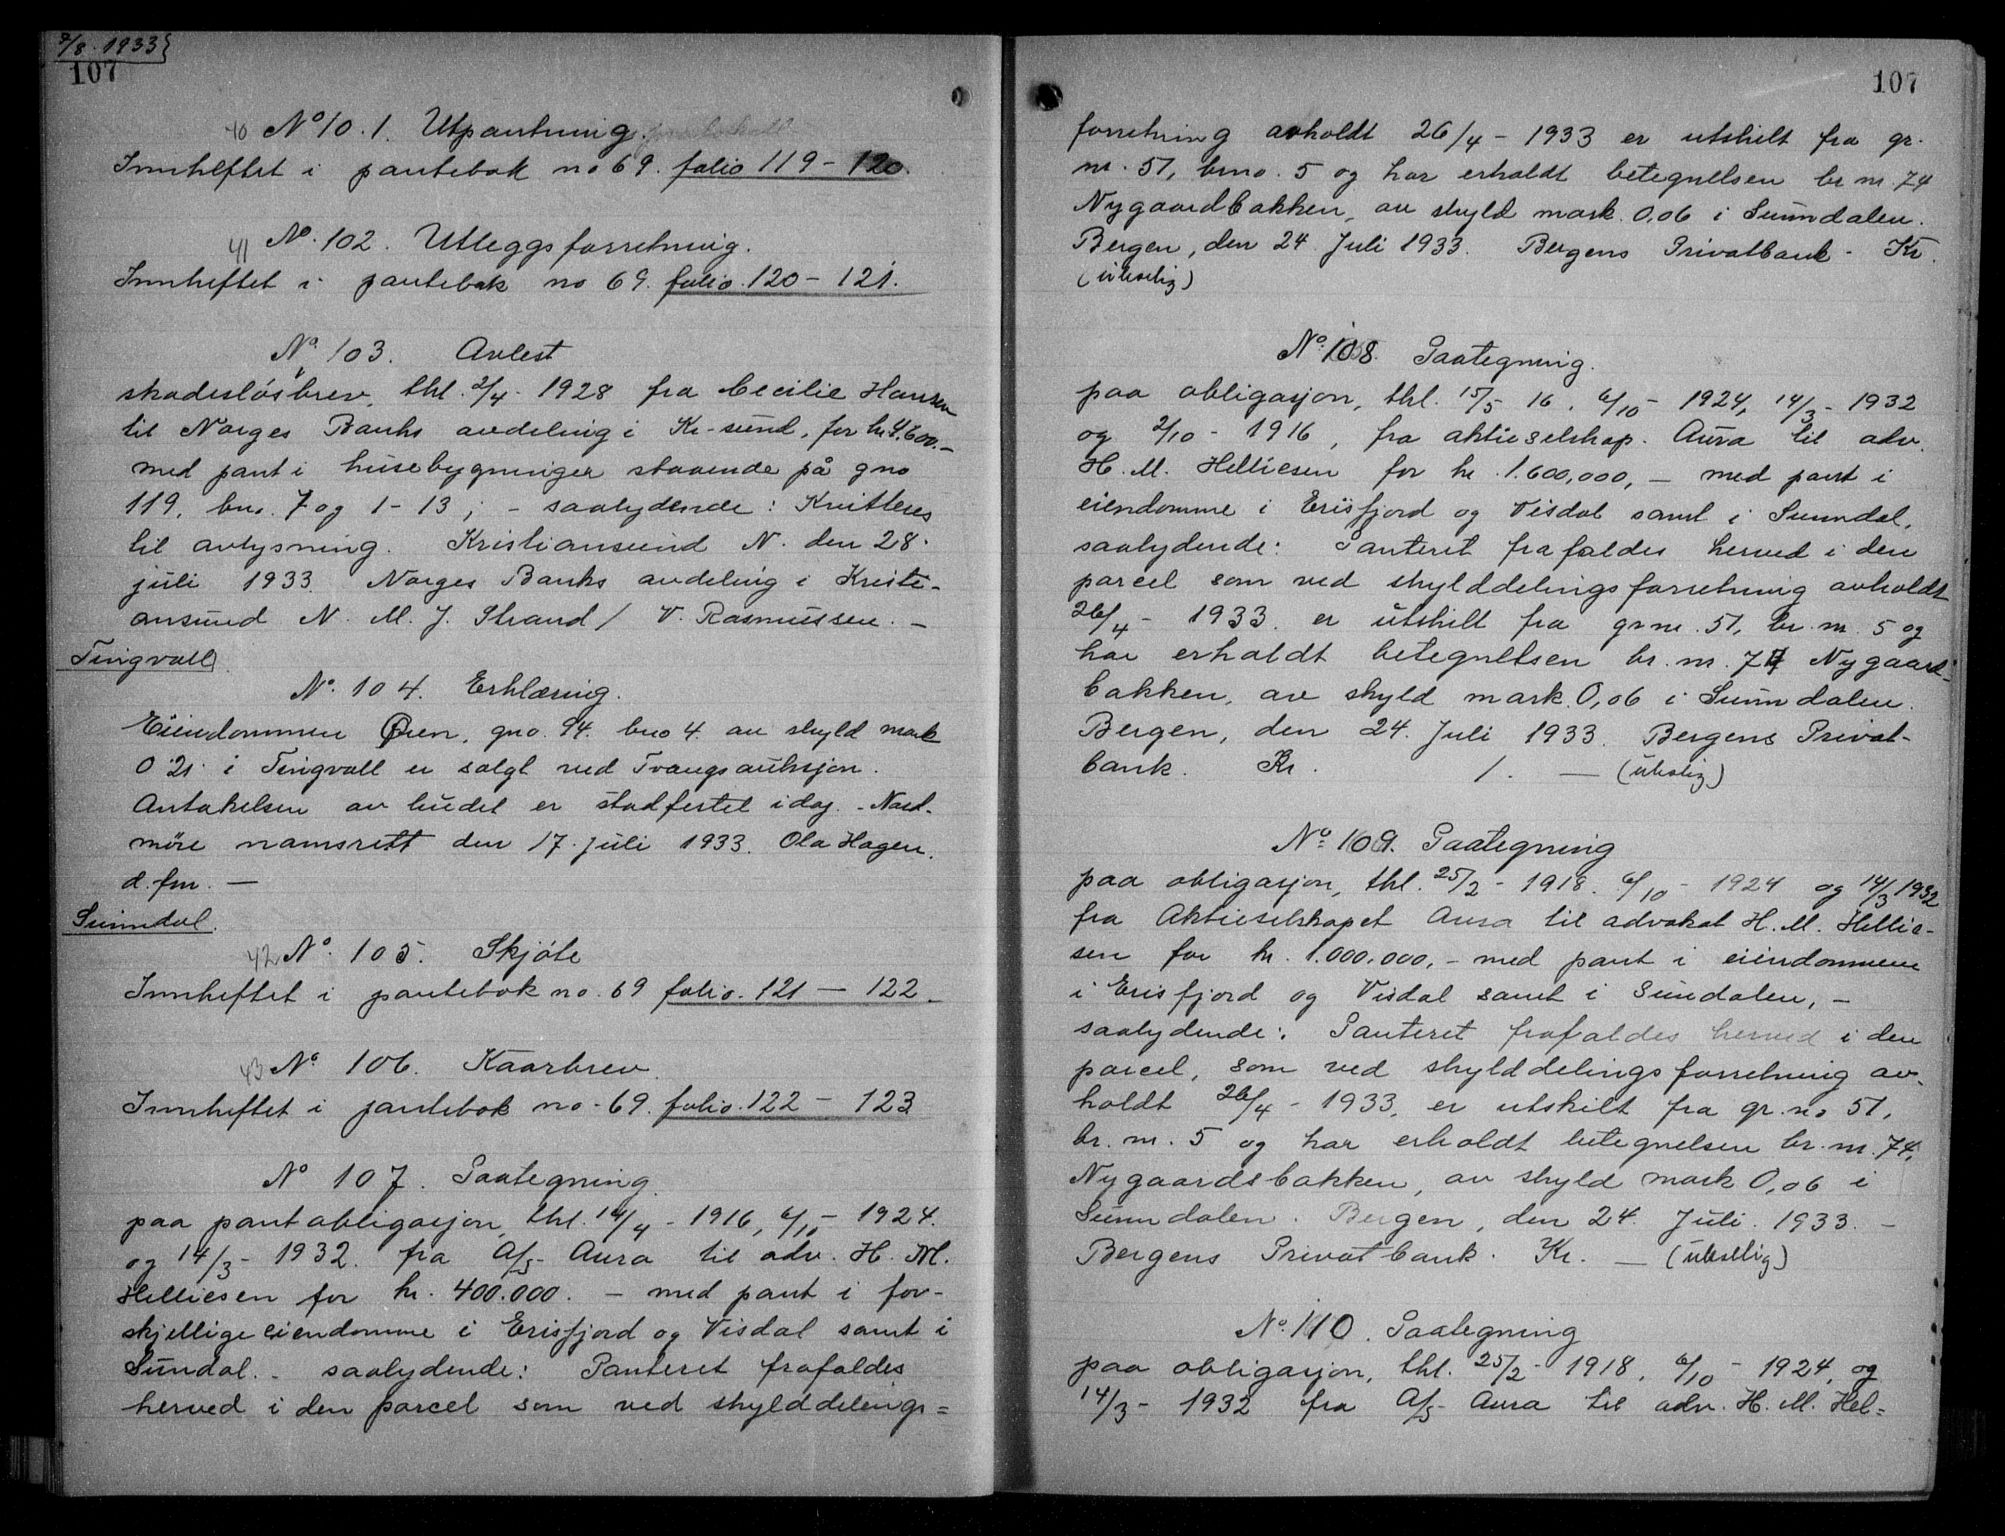 2/8 - 1933
107
40 No 10.1. Utpantning.
Innheftet i pantebok no 69. folio 119 - 120.
41 No. 102. Utleggsforretning.
Innheftet i pantebok no 69. folio. 120 - 121.
No. 103. Avlest
skadesløsbrev, thl. 2/4 - 1928 fra Cecilie Hansen
til Norges Banks avdeling i Kr-sund, for kr 4.600.-
med pant i husebygninger staaende på gno
119, bno. 7 og 1 - 13; - saalydende: Kvitteres
til avlysning. Kristiansund N. den 28.
juli 1933. Norges Banks avdeling i Kristi-
ansund N. M. J. Strand / V. Rasmussen. -
Tingvoll.
No. 104. Erklæring.
Eiendommen Øien, gno. 94. bno 4. av skyld mark
0.21. i Tingvoll er solgt ved Tvangsauksjon.
Antakelsen av budet er stadfestet idag. - Nord-
møre namsrett den 17. juli 1933. Ola Hagen.
d.fm. -
Sunndal.
42 No. 105. Skjøte
Innheftet i pantebok no. 69 folio. 121 - 122.
43 No. 106. Kaarbrev.
Innheftet i pantebok no - 69. folio. 122 - 123
No 107. Paategning.
paa pantobligasjon, thl. 14/4 - 1916, 6/10 - 1924.
og 14/3 - 1932. fra A/S - Aura til adv. H. M.
Helliesen for kr. 400.000. - med pant i for-
skjellige eiendomme i Erisfjord og Visdal samt i
Sundal. - saalydende: Panteret frafaldes
herved i den parcel som ved skylddelings=
107
forretning avholdt 26/4 - 1933 er utskilt fra gr.
nr. 51, brno. 5 og har erholdt betegnelsen br nr. 74
Nygaardbakken, av skyld mark. 0,06 i Sunndalen.
Bergen, den 24. Juli 1933. Bergens Privatbank - Kr.
(uleselig)
No. 108. Paategning.
paa obligasjon, thl. 15/5 16. 6/10 - 1924, 14/3 - 1932
og 2/10 - 1916, fra aktieselskap. Aura til adv.
H. M. Helliesen for kr. 1.600,000, - med pant i
eiendomme i Erisfjord og Visdal samt i Sunndal,
saalydende: Panteret frafaldes herved i den
parcel som ved skylddelingsforretning avholdt
26/4 - 1933. er utskilt fra grnr. 51, br. nr. 5 og
har erholdt betegnelsen br. nr. 74 Nygaard-
bakken, av skyld mark 0,06 i Sunndalen.
Bergen, den 24. Juli 1933. Bergens Privat-
bank. Kr. /. - (uleslig)
No. 109. Paategning
paa obligasjon, thl. 25/2 - 1918. 6/10 - 1924 og 14/3 1932
fra Aktieselskapet Aura til advokat H. M. Hellie-
sen for kr. 1.000.000, - med pant i eiendommene
i Erisfjord og Visdal samt i Sundalen, -
saalydende: Panteret frafaldes herved i den
parcel, som ved skylddelingsforretning av-
holdt 26/4 - 1933, er utskilt fra gr. no 51,
br. nr. 5 og har erholdt betegnelsen br. nr. 74,
Nygaardsbakken, av skyld mark 0,06 i
Sunndalen. Bergen, den 24. Juli. 1933. -
Bergens Privatbank. Kr. - (uleselig)
No. 110. Paategning
paa obligasjon, thl. 25/2 - 1918, 6/10 - 1924, og
14/3 - 1932 fra A/S - Aura til adv. H. M. Hel=